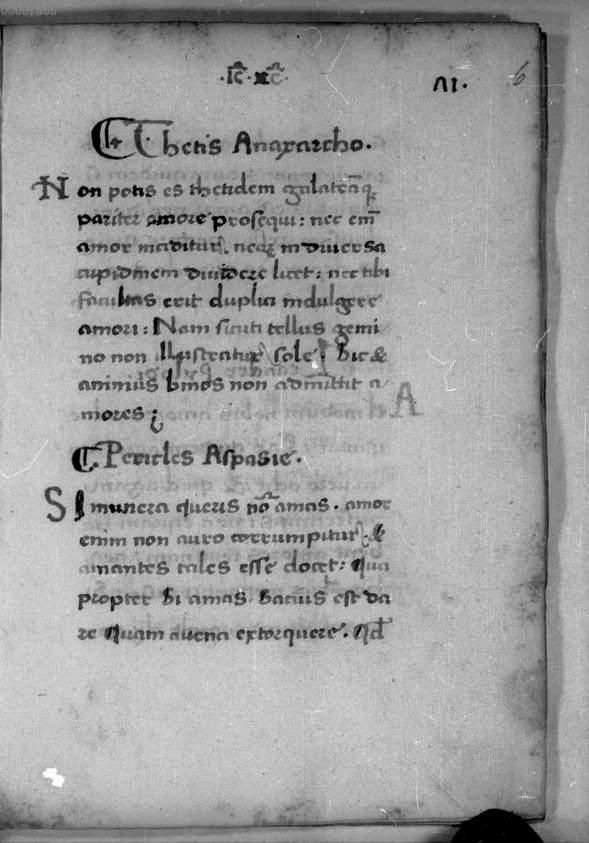 ·IC̄·XC̄·
VI·
6
Thetis Anaxarcho.
Non potis es thetidem galateāq̃
pariter amore prosequi: nec em̃
amor mediditur, neq; in diuersa
cupidinem diuidere licet: nec tibi
facultas erit duplici indulgere
amori: Nam sicuti tellus gemi
no non illustratur sole. hic &
animus binos non admittit a
mores;
A
Pericles Aspasie.
SI munera queris nō amas. amor
enim non auro corrumpitur, &
amantes tales esse docet: Qua
propter si amas satius est da
re quam auena extorquere. Qd